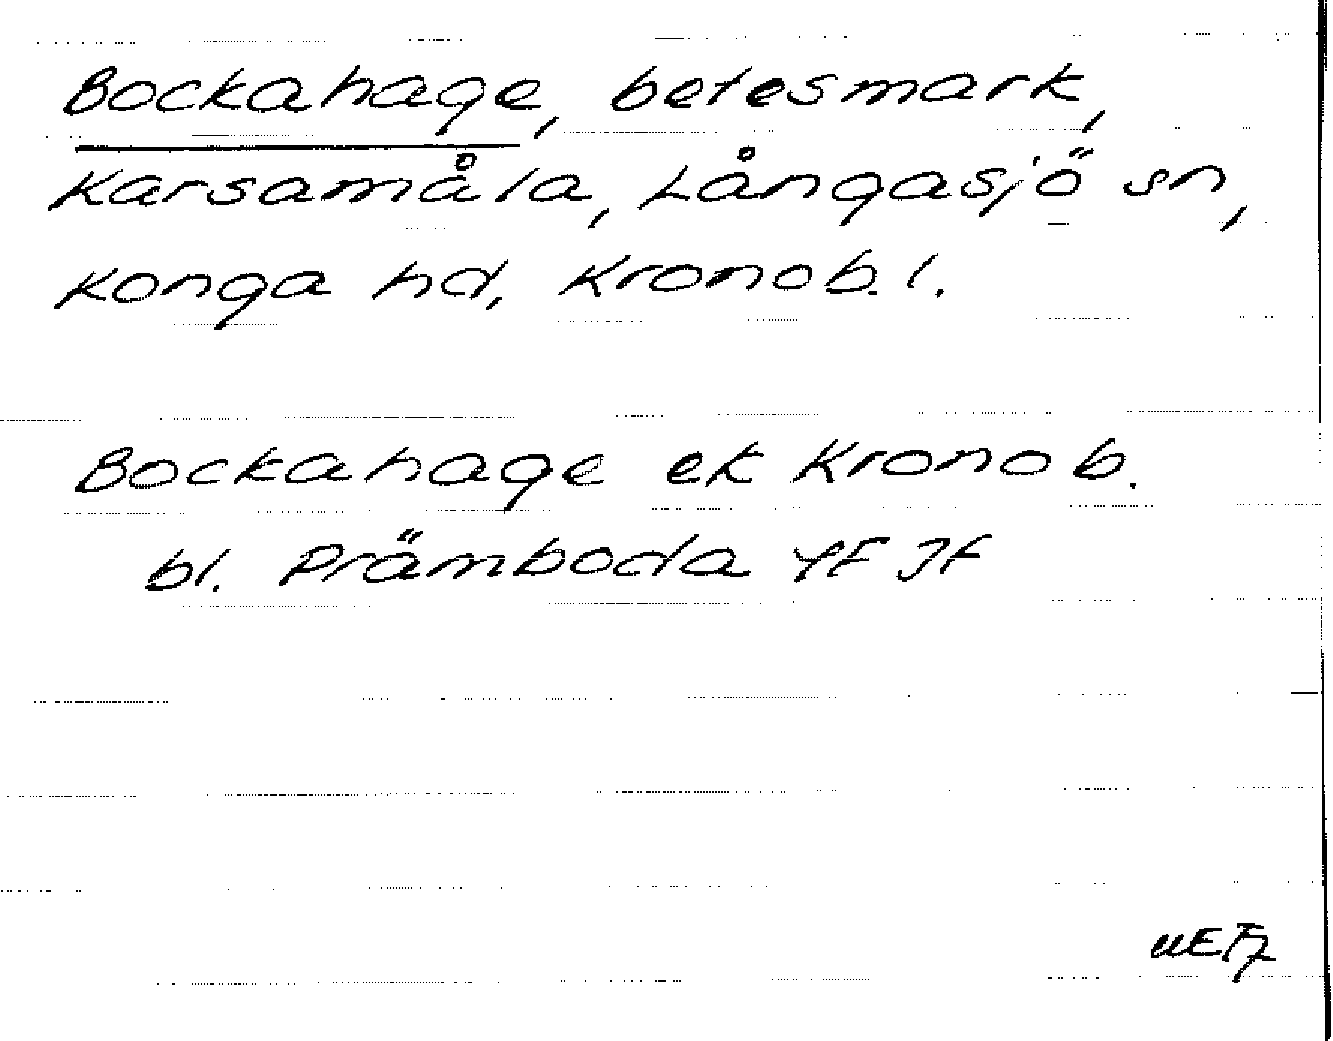 Bockahage, betesmark,
Karsamåla, Långasjö sn,
Konga hd, Kronob. l.
Bockahage ek Kronob.
bl. Prämboda 4F JF